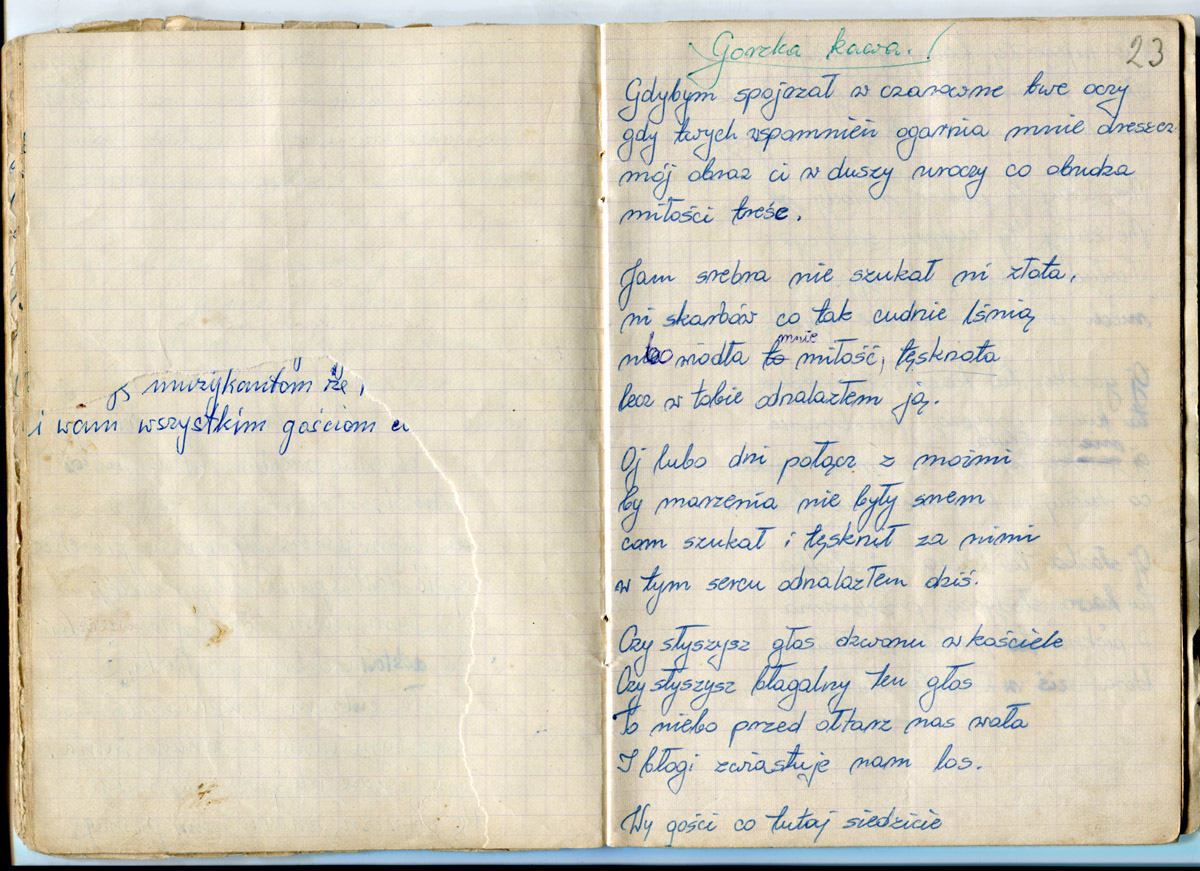 muzykantom że,
i wam wszystkim gościom
Gorzka kawa.
23
Gdybym spojrzał w czarowne twe oczy
gdy twych wspomnień ogarnia mnie dreszcz
mój obraz ci w duszy uroczy co obudza
miłości treśc.
Jam srebra nie szukał ni złota,
ni skarbów co tak cudnie lśnią
bo wiodła mnie miłość, tęsknota
lecz w tobie odnalazłem ją.
Oj lubo dni połącz z moimi
by marzenia nie były snem
com szukał i tęsknił za nimi
w tym sercu odnalazłem dziś.
Czy słyszysz głos dzwonu w kościele
Czy słyszysz błagalny ten głos
To niebo przed ołtarz nas woła
I błogi zwiastuje nam los.
Wy gości co tutaj siedzicie